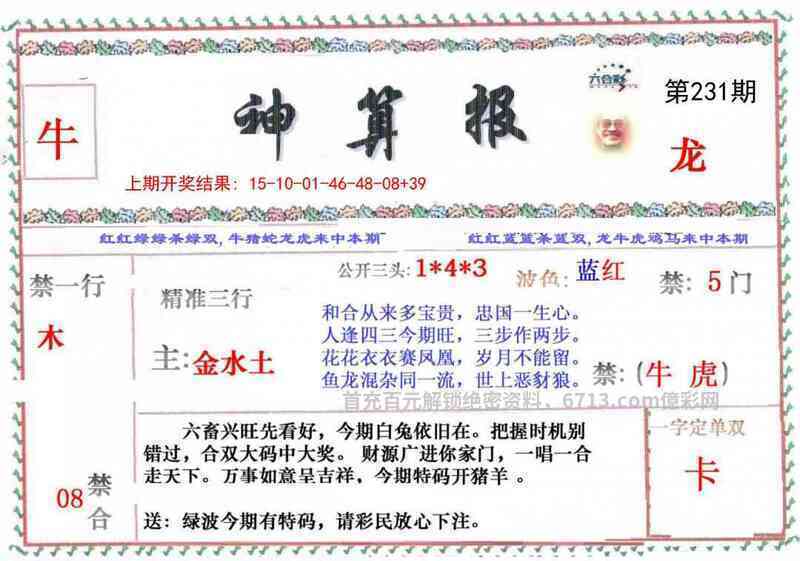 六合彩
神算报
第231期
牛
龙
上期开奖结果：15-10-01-46-48-08+39
红红绿绿杀绿双,牛猪蛇龙虎来中本期
红红蓝蓝杀蓝双,龙牛虎鸡马来中本期
禁一行
木
精准三行
主:金水土
公开三头:1*4*3
波色:蓝红
禁:5门
和合从来多宝贵，忠国一生心。
人逢四三今期旺，三步作两步。
花花衣衣赛凤凰，岁月不能留。
鱼龙混杂同一流，世上恶豺狼。
禁:(牛虎)
首充百元解锁绝密资料、6713.com億彩网
08禁合
六畜兴旺先看好，今期白兔依旧在。把握时机别
错过，合双大码中大奖。 财源广进你家门，一唱一合
走天下。万事如意呈吉祥，今期特码开猪羊 。
送：绿波今期有特码，请彩民放心下注。
一字定单双
卡